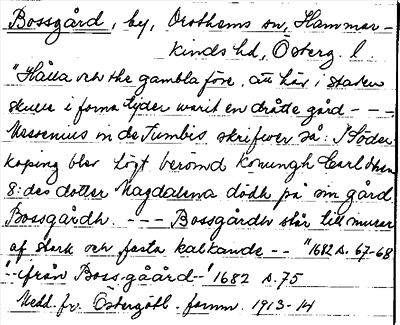 Bossgård, by, Drothems sn, Hammar-
kinds hd, Österg. l
"Hålla och the gambla före, att här i staden
skulle i forna tijder warit en dråtte gård - - -
Messenius in de Tumbis skrifwer så: I Söder
köping blev högt berömd Konungh Carl then
8:des dotter Magdalena dödh på sin gård
Bossgårdh. --- Bossgårdh står till murar
af stark och fasta kalkande -- " 1682 s. 67-68
"- ifrån Boss-gåård-" 1682 s. 75
Medd. fr. Östergötl. fornm. 1913-14